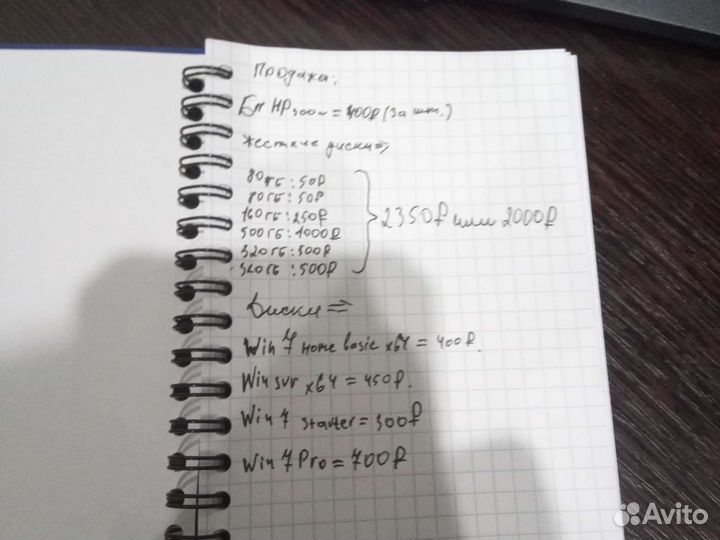 Продажа:
БП HP 300w = 400₽ (За шт.)
Жесткие диски =>
80ГБ : 50₽
80ГБ : 50₽
160ГБ : 250₽
500ГБ : 1000₽
320ГБ : 500₽
320ГБ : 500₽
2350₽ или 2000₽
Диски =>
Win 7 Home basic x64 = 400₽.
Win svr x64 = 450₽.
Win 7 starter = 300₽
Win 7 Pro = 700₽
Avito